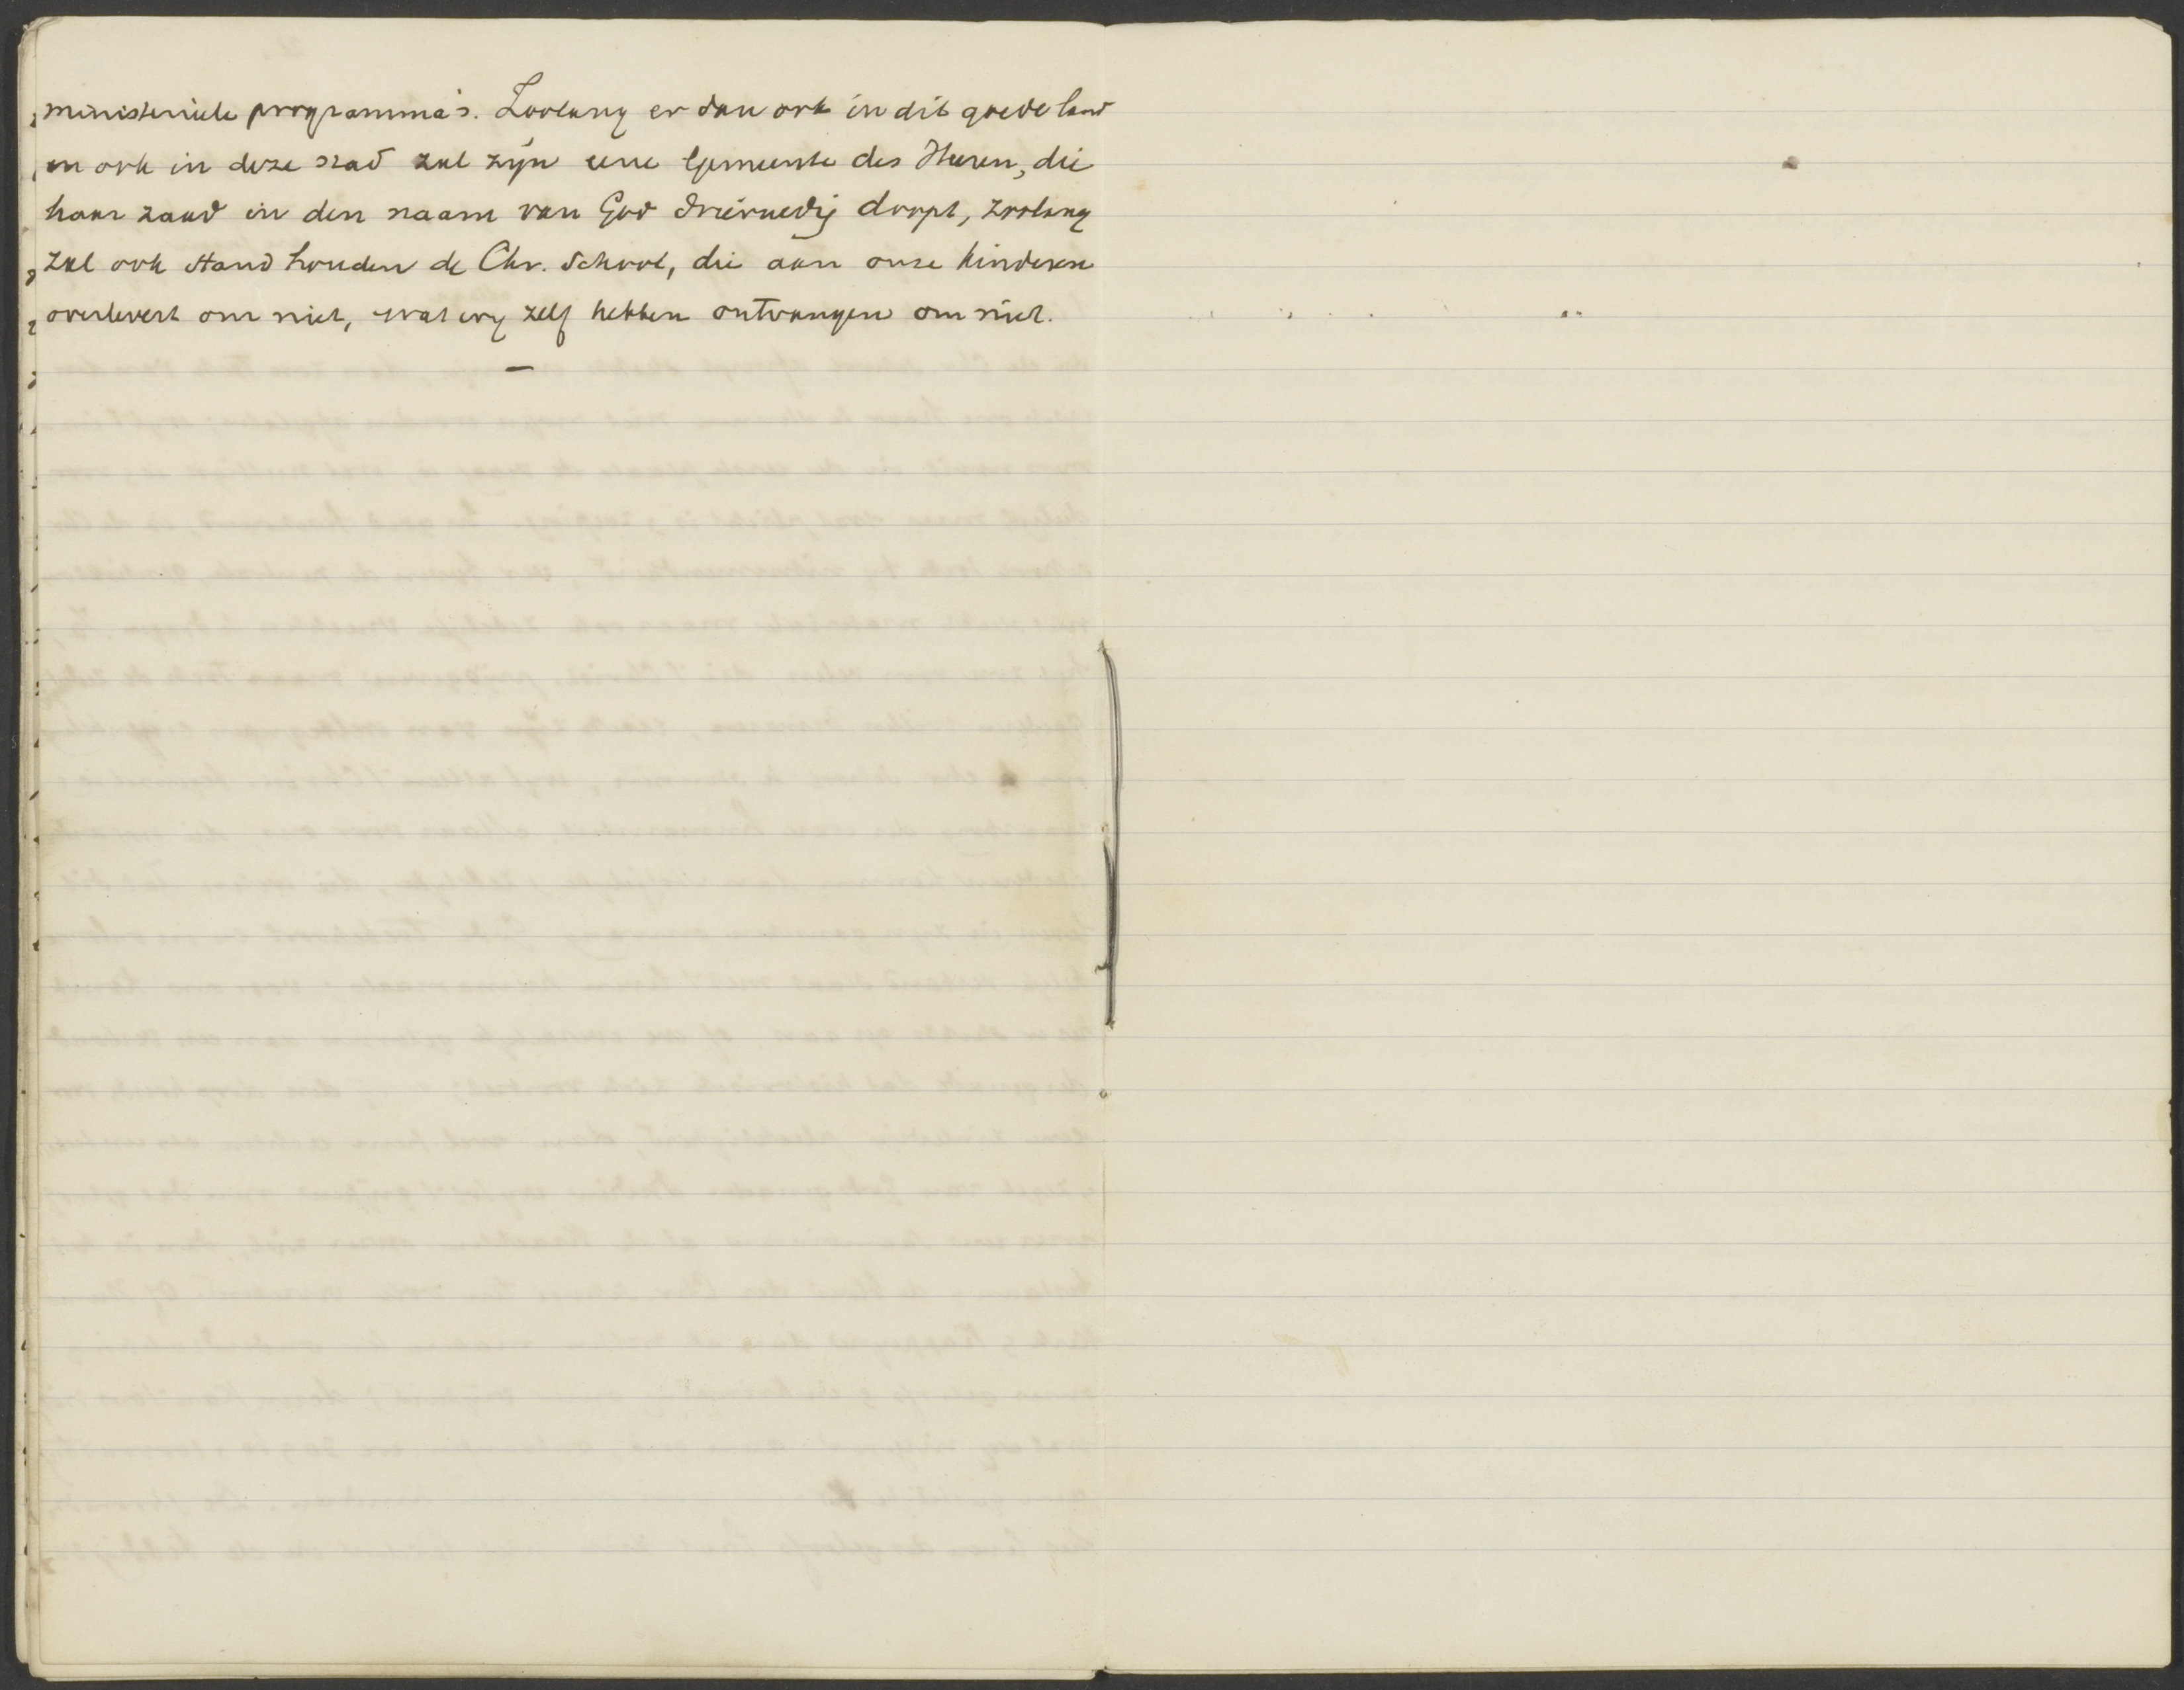 ministerieele programma's. Zoolang er dan ook in dit goede land
en ook in deze stad zal zijn eene Gemeente des Heeren, die
haar zaad in den naam van God drieëenig doopt, zoolang
zal ook stand houden de Chr. School, die aan onze kinderen
overlevert om niet, wat wij zelf hebben ontvangen om niet.
—